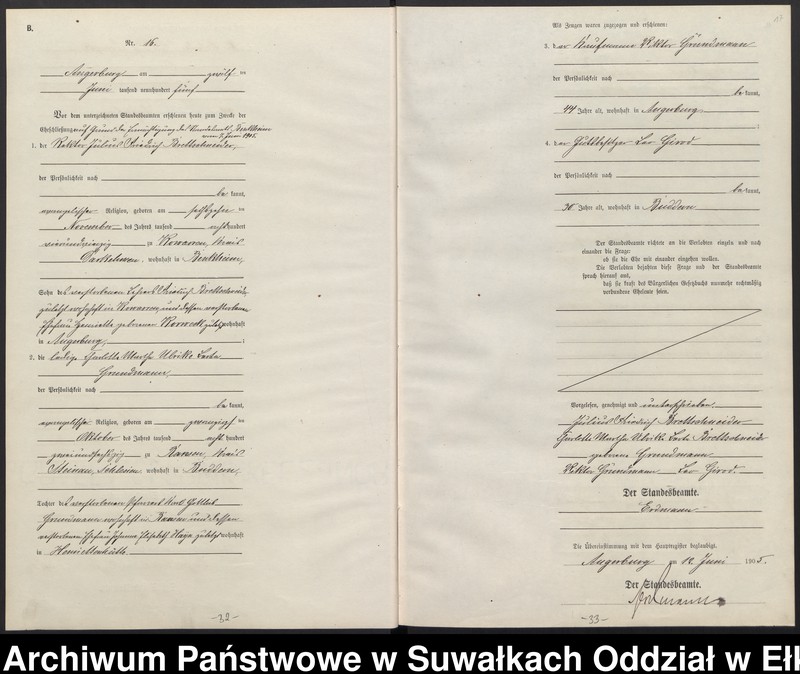 B.
Nr. 16.
Angerburg am zwölf ten
Juni tausend neunhundert fünf
Vor dem unterzeichneten Standesbeamten erschienen heute zum Zwecke der
Eheschließung auf Grund der Ermächtigung des Standesamts Benkheim
vom Juni 1905.
1. der Rektor Julius Friedrich Brettschneider,
der Persönlichkeit nach
be kannt,
evangelischer Religion, geboren am sechszehn ten
November des Jahres tausend acht hundert
vierundsiebzig zu Kowarren, Kreis
Darkehmen, wohnhaft in Benkheim,
Sohn des verstorbenen Friedrich Brettschneider,
zuletzt wohnhaft in Kowarren, und dessen verstorbenen
Ehefrau Henriette geborenen zuletzt wohnhaft
in Angerburg ;
2. die ledige Charlotte Martha Ulrike
Grundmann,
der Persönlichkeit nach
be kannt,
evangelischer Religion, geboren am zwanzigsten
Oktober des Jahres tausend acht hundert
zu Kreis
Steinau, Schlesien wohnhaft in Buddern,
Tochter des verstorbenen Pfarrers Karl
Grundmann wohnhaft in und dessen
verstorbenen Ehefrau Johanna Elisabeth zuletzt wohnhaft
in Henriettenhütte.
-32-
Als Zeugen waren zugezogen und erschienen:
3. der Kaufmann Viktor Grundmann
der Persönlichkeit nach
be kannt,
44 Jahre alt, wohnhaft in Angerburg
;
4. der Gutsbesitzer Leo Girod
der Persönlichkeit nach
be kannt,
30 Jahre alt, wohnhaft in Buddern
Der Standesbeamte richtete an die Verlobten einzeln und nach
einander die Frage:
ob sie die Ehe mit einander eingehen wollen.
Die Verlobten bejahten diese Frage und der Standesbeamte
sprach hierauf aus,
daß sie kraft des Bürgerlichen Gesetzbuchs nunmehr rechtmäßig
verbundene Eheleute seien.
Vorgelesen, genehmigt und unterschrieben
Julius Friedrich Brettschneider
Charlotte Martha Ulrike Brettschneider
geborene Grundmann
Viktor Grundmann Leo Girod.
Der Standesbeamte.
Erdmann
Die Übereinstimmung mit dem Hauptregister beglaubigt.
Angerburg am 12. Juni 1905.
Der Standesbeamte.
Erdmann
-33-
Archiwum Państwowe w Suwałkach Oddział w Ełk